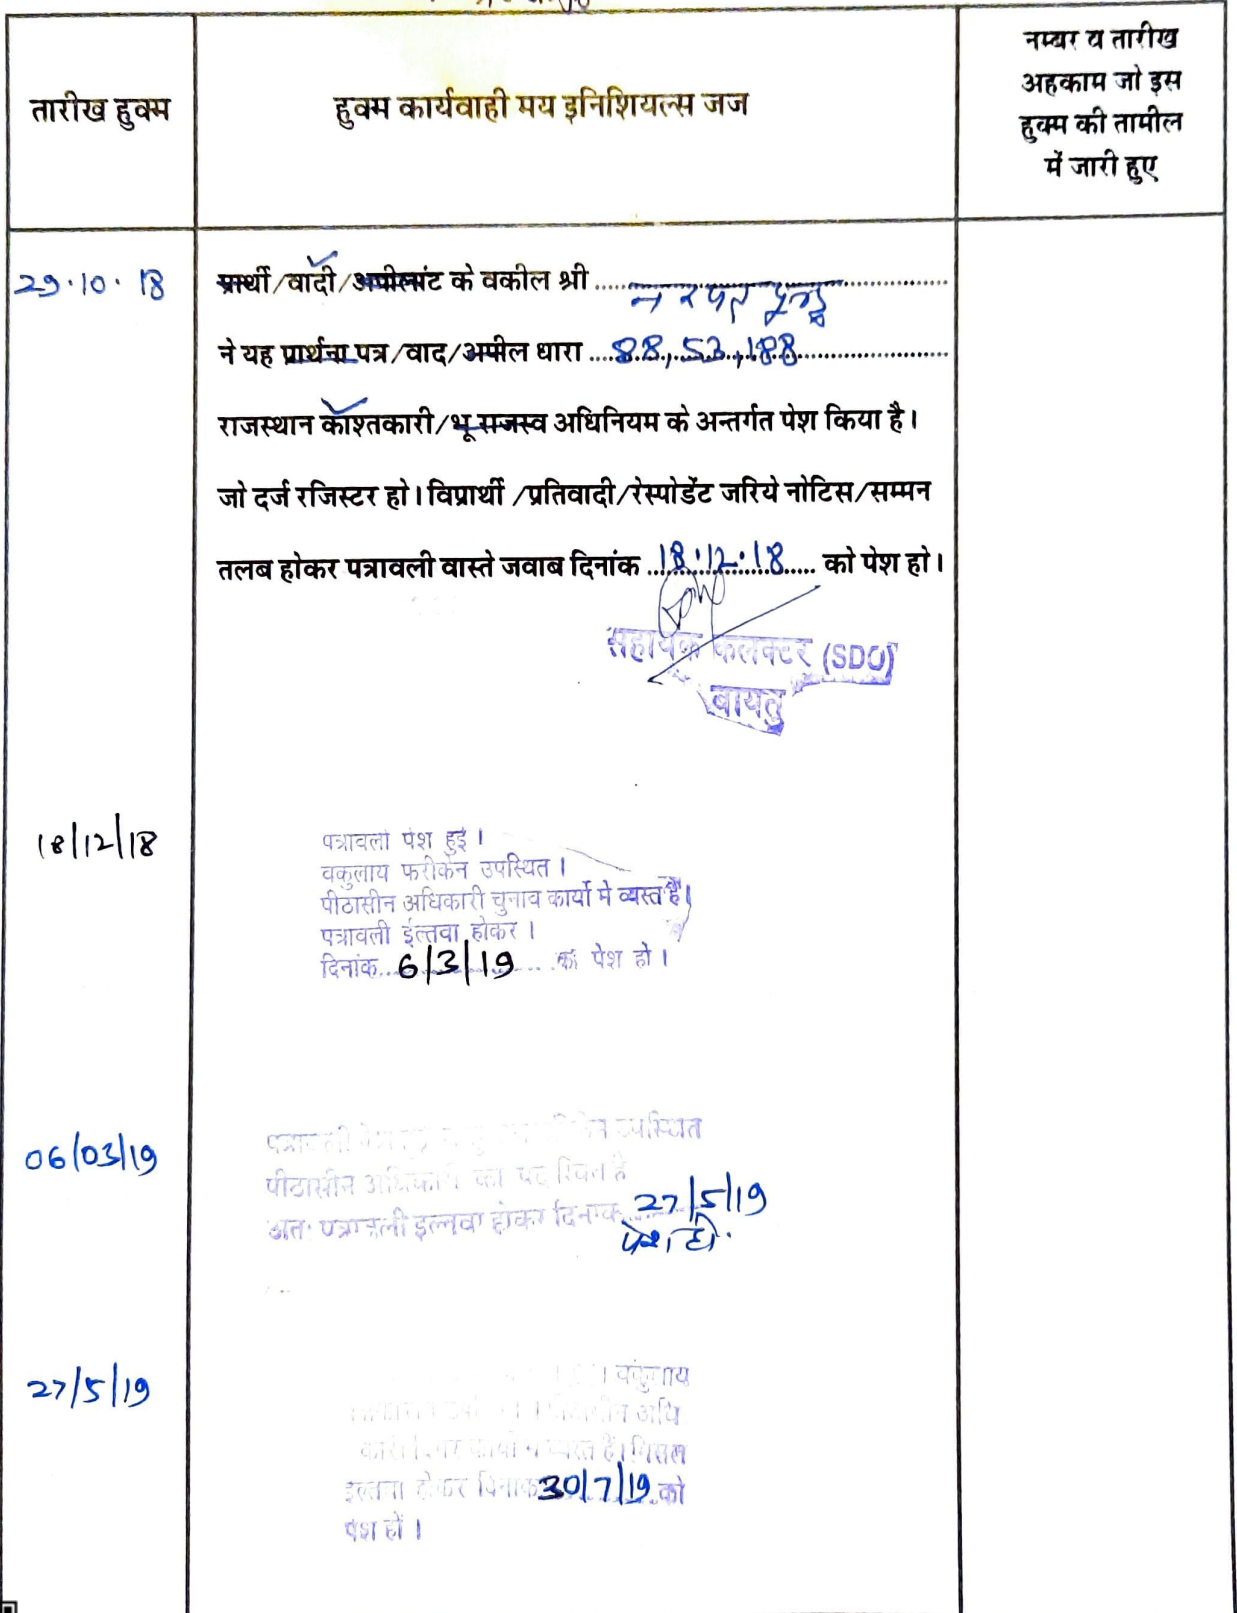 तारीख हुक्म
हुक्म कार्यवाही मय इनिशियल्स जज
नम्बर व तारीख
अहकाम जो इस
हुक्म की तामील
में जारी हुए
29.10.18
प्रार्थी/वादी/अपीलांट के वकील श्री
ने यह प्रार्थना पत्र/वाद/अपील धारा 88,53,188
राजस्थान काश्तकारी/भू राजस्व अधिनियम के अन्तर्गत पेश किया है।
जो दर्ज रजिस्टर हो। विप्रार्थी/प्रतिवादी/रेस्पोडेंट जरिये नोटिस/सम्मन
तलब होकर पत्रावली वास्ते जवाब दिनांक 18.12.18 को पेश हो।
सहायक कलक्टर (SDO)
बायतु
18/12/18
पत्रावली पेश हुई।
वकुलाय फरीकेन उपस्थित।
पीठासीन अधिकारी चुनाव कार्यो मे व्यस्त है।
पत्रावली ईल्तवा होकर।
दिनांक 6/3/19 को पेश हो।
06/03/19
पत्रावली उपस्थित
पीठासीन अधिकारी का पद रिक्त है
अतः पत्रावली इल्तवा होकर दिनांक 27/5/19
पेश हो.
27/5/19
वकुलाय
अधि
व्यस्त है। मिसल
इल्तवा होकर दिनांक 30/7/19 को
पेश हों।